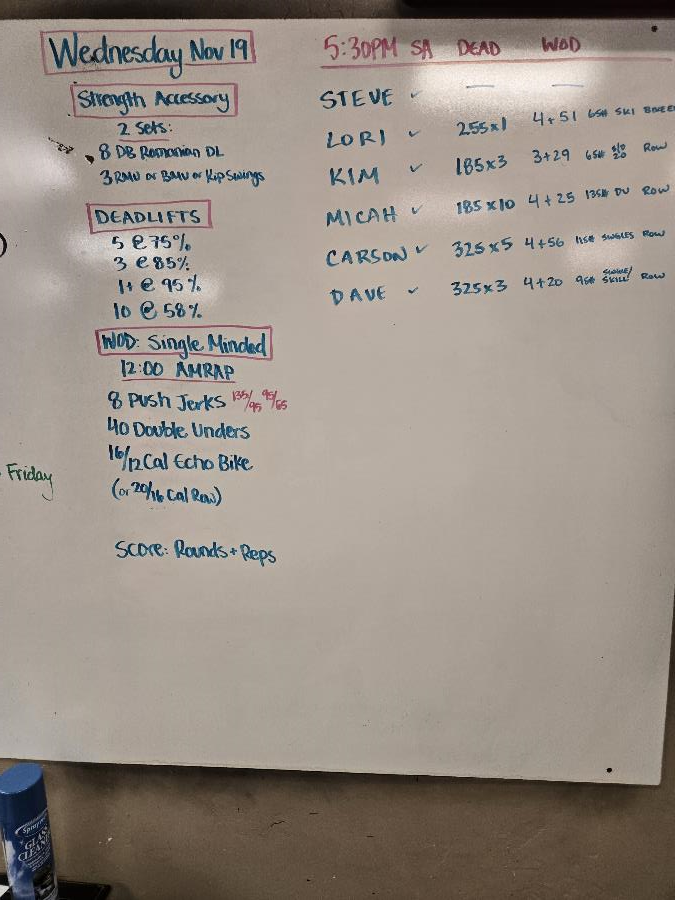 Wednesday Nov 19
Strength Accessory
2 Sets:
8 DB Romanian DL
3 RMU or BMU or Kip Swings
DEADLIFTS
5 @ 75%
3 @ 85%
1+ @ 95%
10 @ 58%
WOD: Single Minded
12:00 AMRAP
8 Push Jerks 135/95 95/65
40 Double Unders
16/12 Cal Echo Bike
(or 20/16 Cal Row)
Score: Rounds + Reps
Friday
5:30PM SA DEAD WOD
STEVE ✓ — —
LORI ✓ 255x1 4+51 65# SKI
KIM ✓ 185x3 3+29 65# 20 Row
MICAH ✓ 185x10 4+25 135# DU Row
CARSON ✓ 325x5 4+56 115# SINGLES Row
DAVE ✓ 325x3 4+20 95# SKILL Row
Sprayway
GLASS
CLEANER